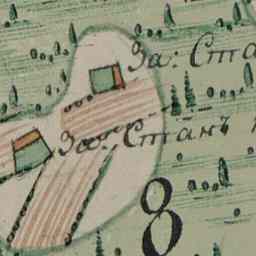 За: Ста
За: Станъ
8